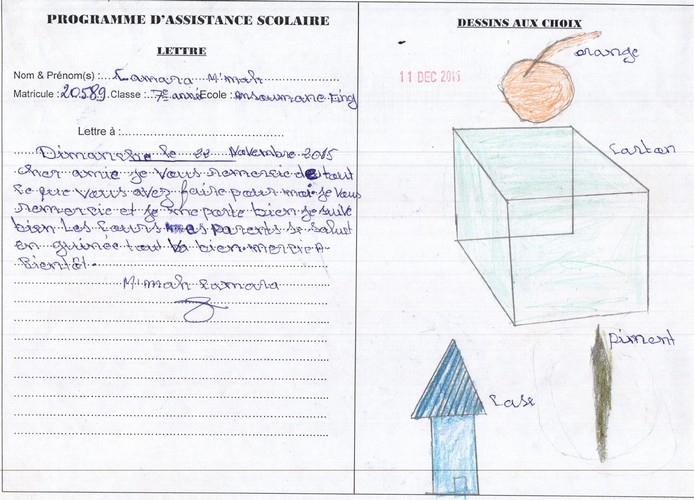 PROGRAMME D'ASSISTANCE SCOLAIRE
LETTRE
Nom & Prénom(s) : Camara M'mah
Matricule : 20589 Classe : 7e année Ecole : Ansoumane Fing
Lettre à :
Dimanche le 22 Novembre 2015
cher amie je vous remercie de tout
ce que vous avez faire pour moi je vous
remercie et je me porte bien je suive
bien les cours mes parents se salut
en guinée tout va bien mercie A-
bientôt
M'mah Camara
DESSINS AUX CHOIX
11 DEC 2015
orange
Carton
piment
Case